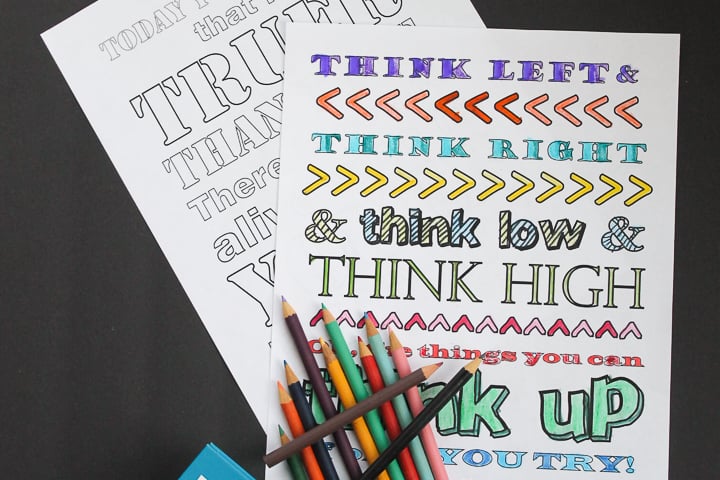 TODAY
that
TRUER
THAN
There
THINK LEFT &
THINK RIGHT
& think low &
THINK HIGH
things you can
think up
YOU TRY!